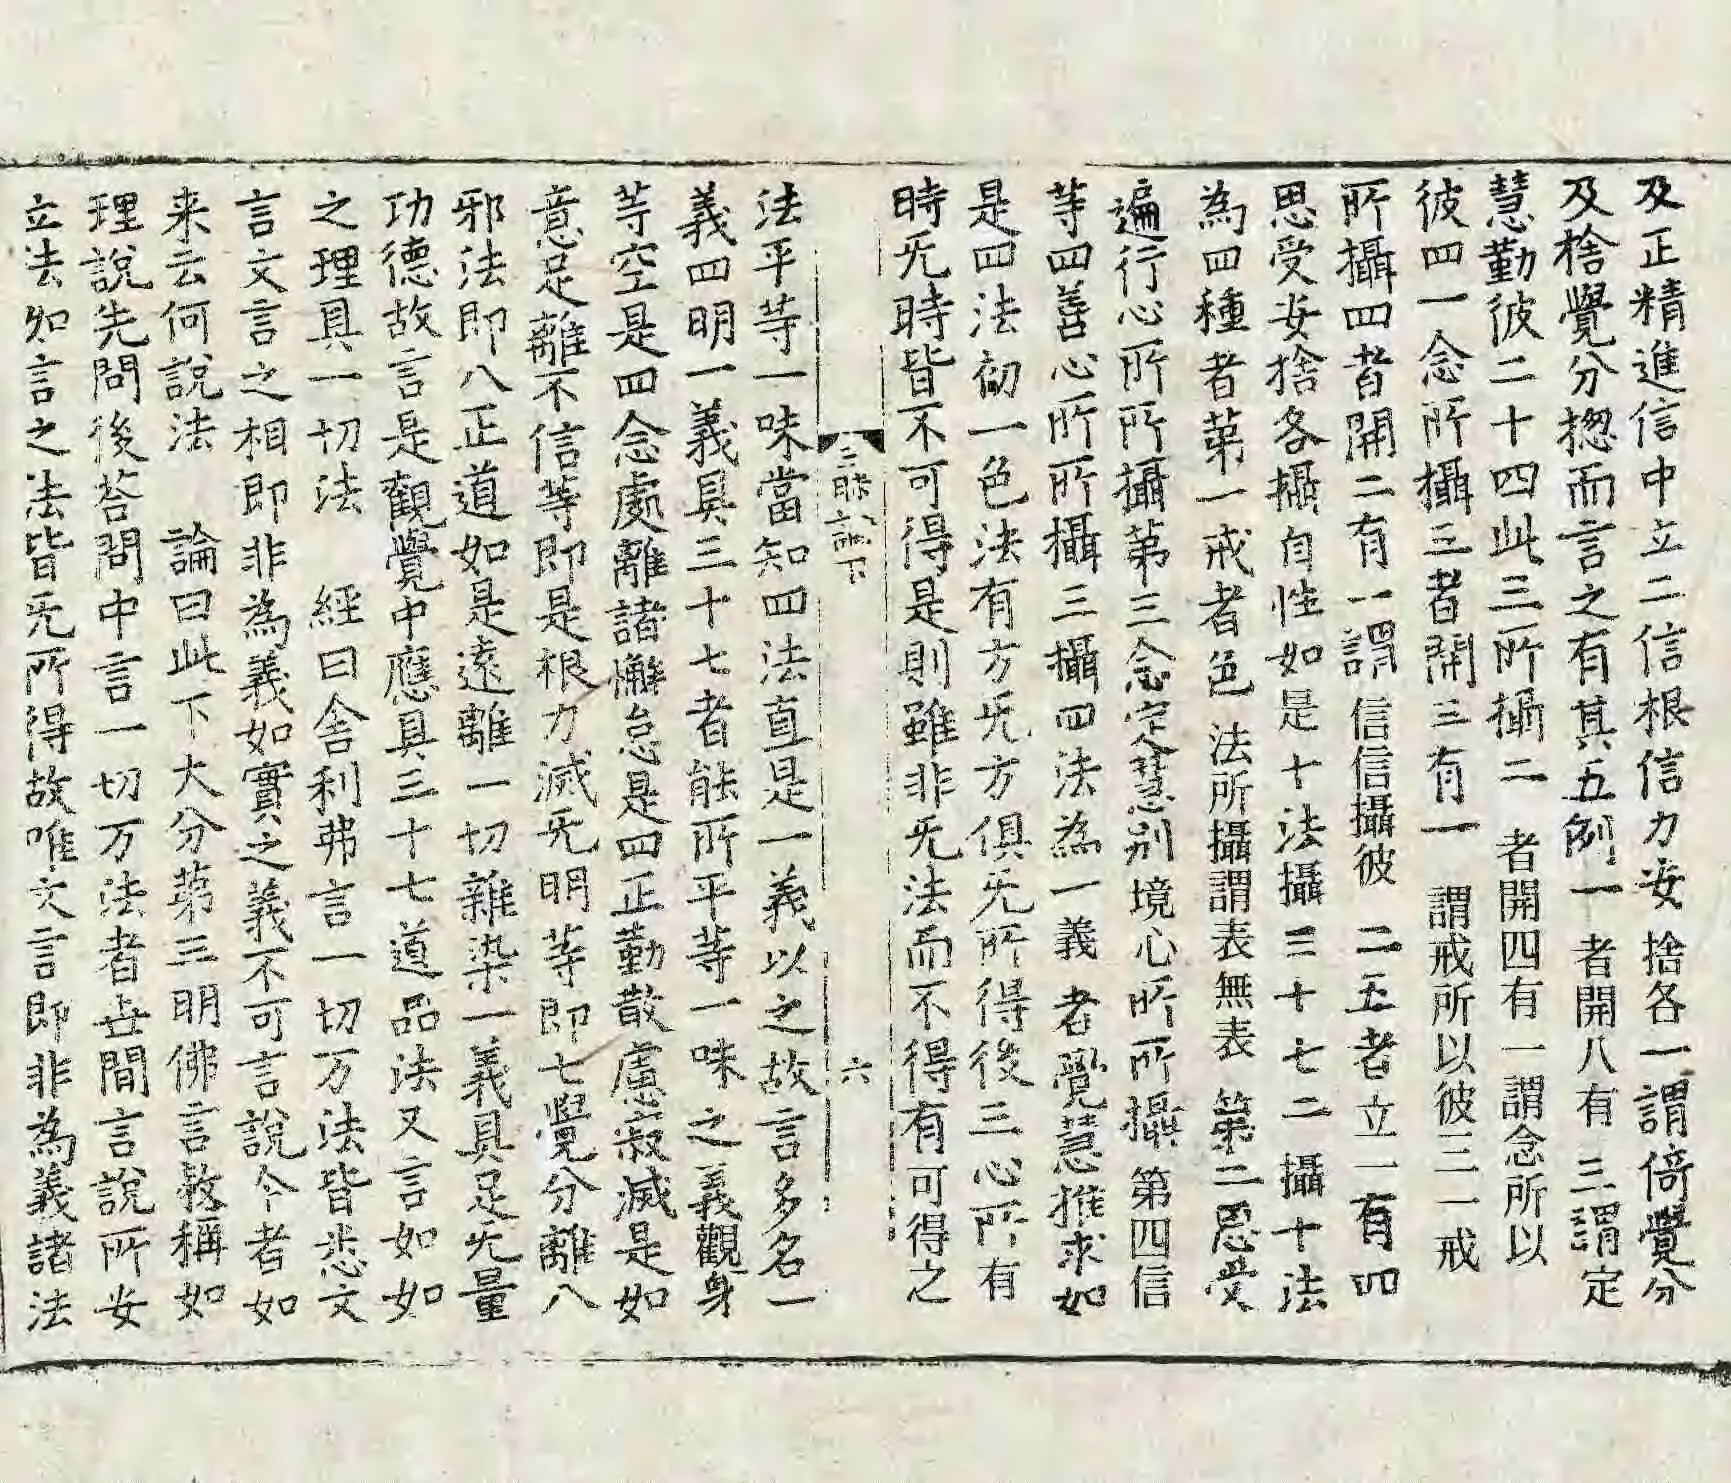 及正精進信中立二信根信力安捨各一謂倚覺分
及捨覺分揔而言之有其五例一者開八有三謂定
慧勤彼二十四此三所攝二者開四有一謂念所以
彼四一念所攝三者開三有一謂戒所以彼三一戒
所攝四者開二有一謂信信攝彼二五者立一有四
思受安捨各攝自性如是十法攝三十七二攝十法
為四種者第一戒者色法所攝謂表無表第二思受
遍行心所所攝第三念定慧別境心所所攝第四信
等四善心所所攝三攝四法為一義者覺慧推求如
是四法初一色法有方旡方俱旡所得後三心所有
時旡時皆不可得是則雖非旡法而不得有可得之
三昧論下
六
法平等一味當知四法直是一義以之故言多名一
義四明一義具三十七者能所平等一味之義觀身
等空是四念處離諸懈怠是四正勤散慮寂滅是如
意足離不信等即是根力滅旡明等即七覺分離八
邪法即八正道如是遠離一切雜染一義具足旡量
功德故言是觀覺中應具三十七道品法又言如如
之理具一切法 經曰舍利弗言一切万法皆悉文
言文言之相即非為義如實之義不可言說今者如
来云何說法 論曰此下大分第三明佛言教稱如
理說先問後荅問中言一切万法者世間言說所安
立法如言之法皆旡所得故唯文言即非為義諸法